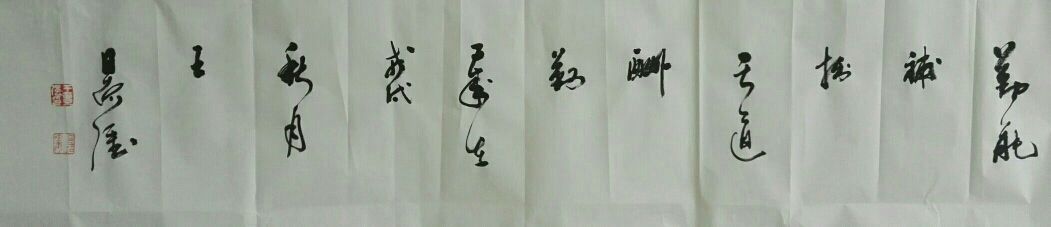 勤能
補
拙
天道
酬
勤
歲在
戊戌
秋月
王